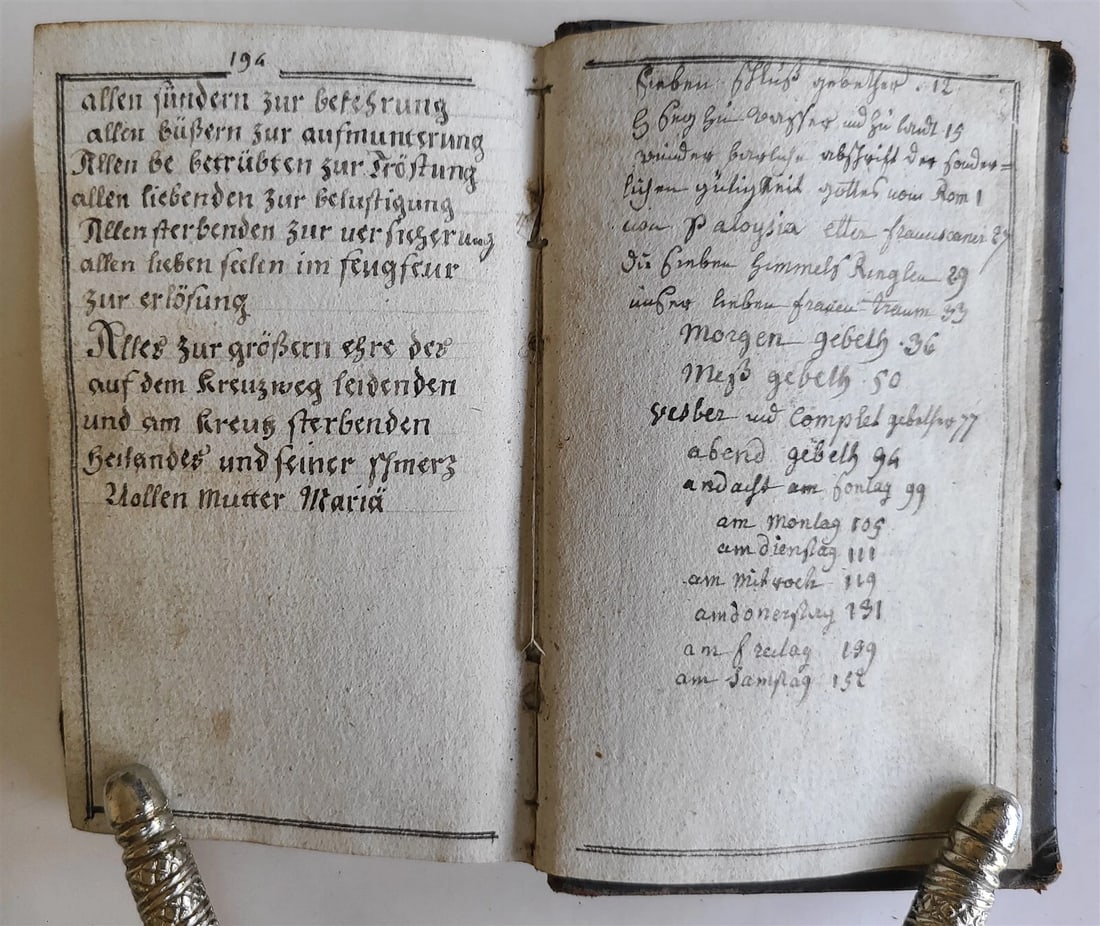 194
allen sündern zur bekehrung
allen büßern zur aufmunterung
Allen be betrübten zur Tröstung
allen liebenden zur belustigung
Allen sterbenden zur versicherung
allen lieben seelen im fengfeur
zur erlösung
Alles zur größern ehre des
auf dem Kreuzweg leidenden
und am Kreutz sterbenden
Heilandes und seiner schmerz
Vollen Mutter Mariä
sieben schluß gebether . 12
Seg zu wasser und zu landt 15
wunder barliche abschrift der sonder=
lichen gütigkeit gottes vom Rom 1
von P aloysia franciscaner 27
Die sieben himmels Ringlen 29
unser lieben frauen traum 33
Morgen gebeth . 36
Meß gebeth 50
vesber und Complet gebether 77
abend gebeth 94
andacht am sontag 99
am Montag 105
am dienstag 111
am Mitwoch 119
am donerstag 131
am freitag 139
am Samstag 152